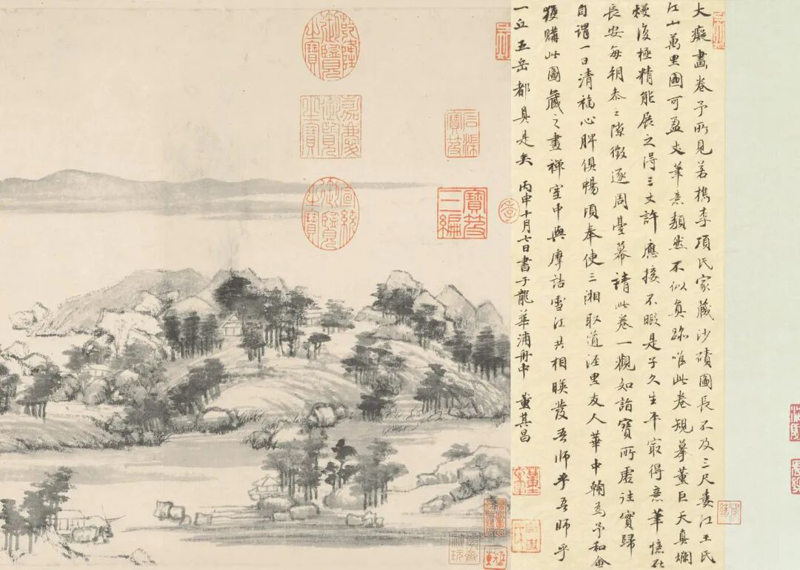 大癡畫卷予所見若檇李項氏家藏沙磧圖長不及三尺婁江王氏
江山萬里圖可盈丈筆意頹然不似真跡唯此卷規摹董巨天真爛
熳復極精能展之得三丈許應接不暇是子久生平最得意筆憶在
長安每朝參之隙徵逐周臺幕請此卷一觀如詣寶所虛往實歸
自謂一日清福心脾俱暢頃奉使三湘取道涇里友人華中翰為予和會
獲購此圖藏之畫禪室中與摩詰雪江共相映發吾師乎吾師乎
一丘五岳都具是矣 丙申十月七日書于龍華浦舟中 董其昌
石渠寶笈
寶笈三編
乾隆御覽之寶
嘉慶御覽之寶
宣統御覽之寶